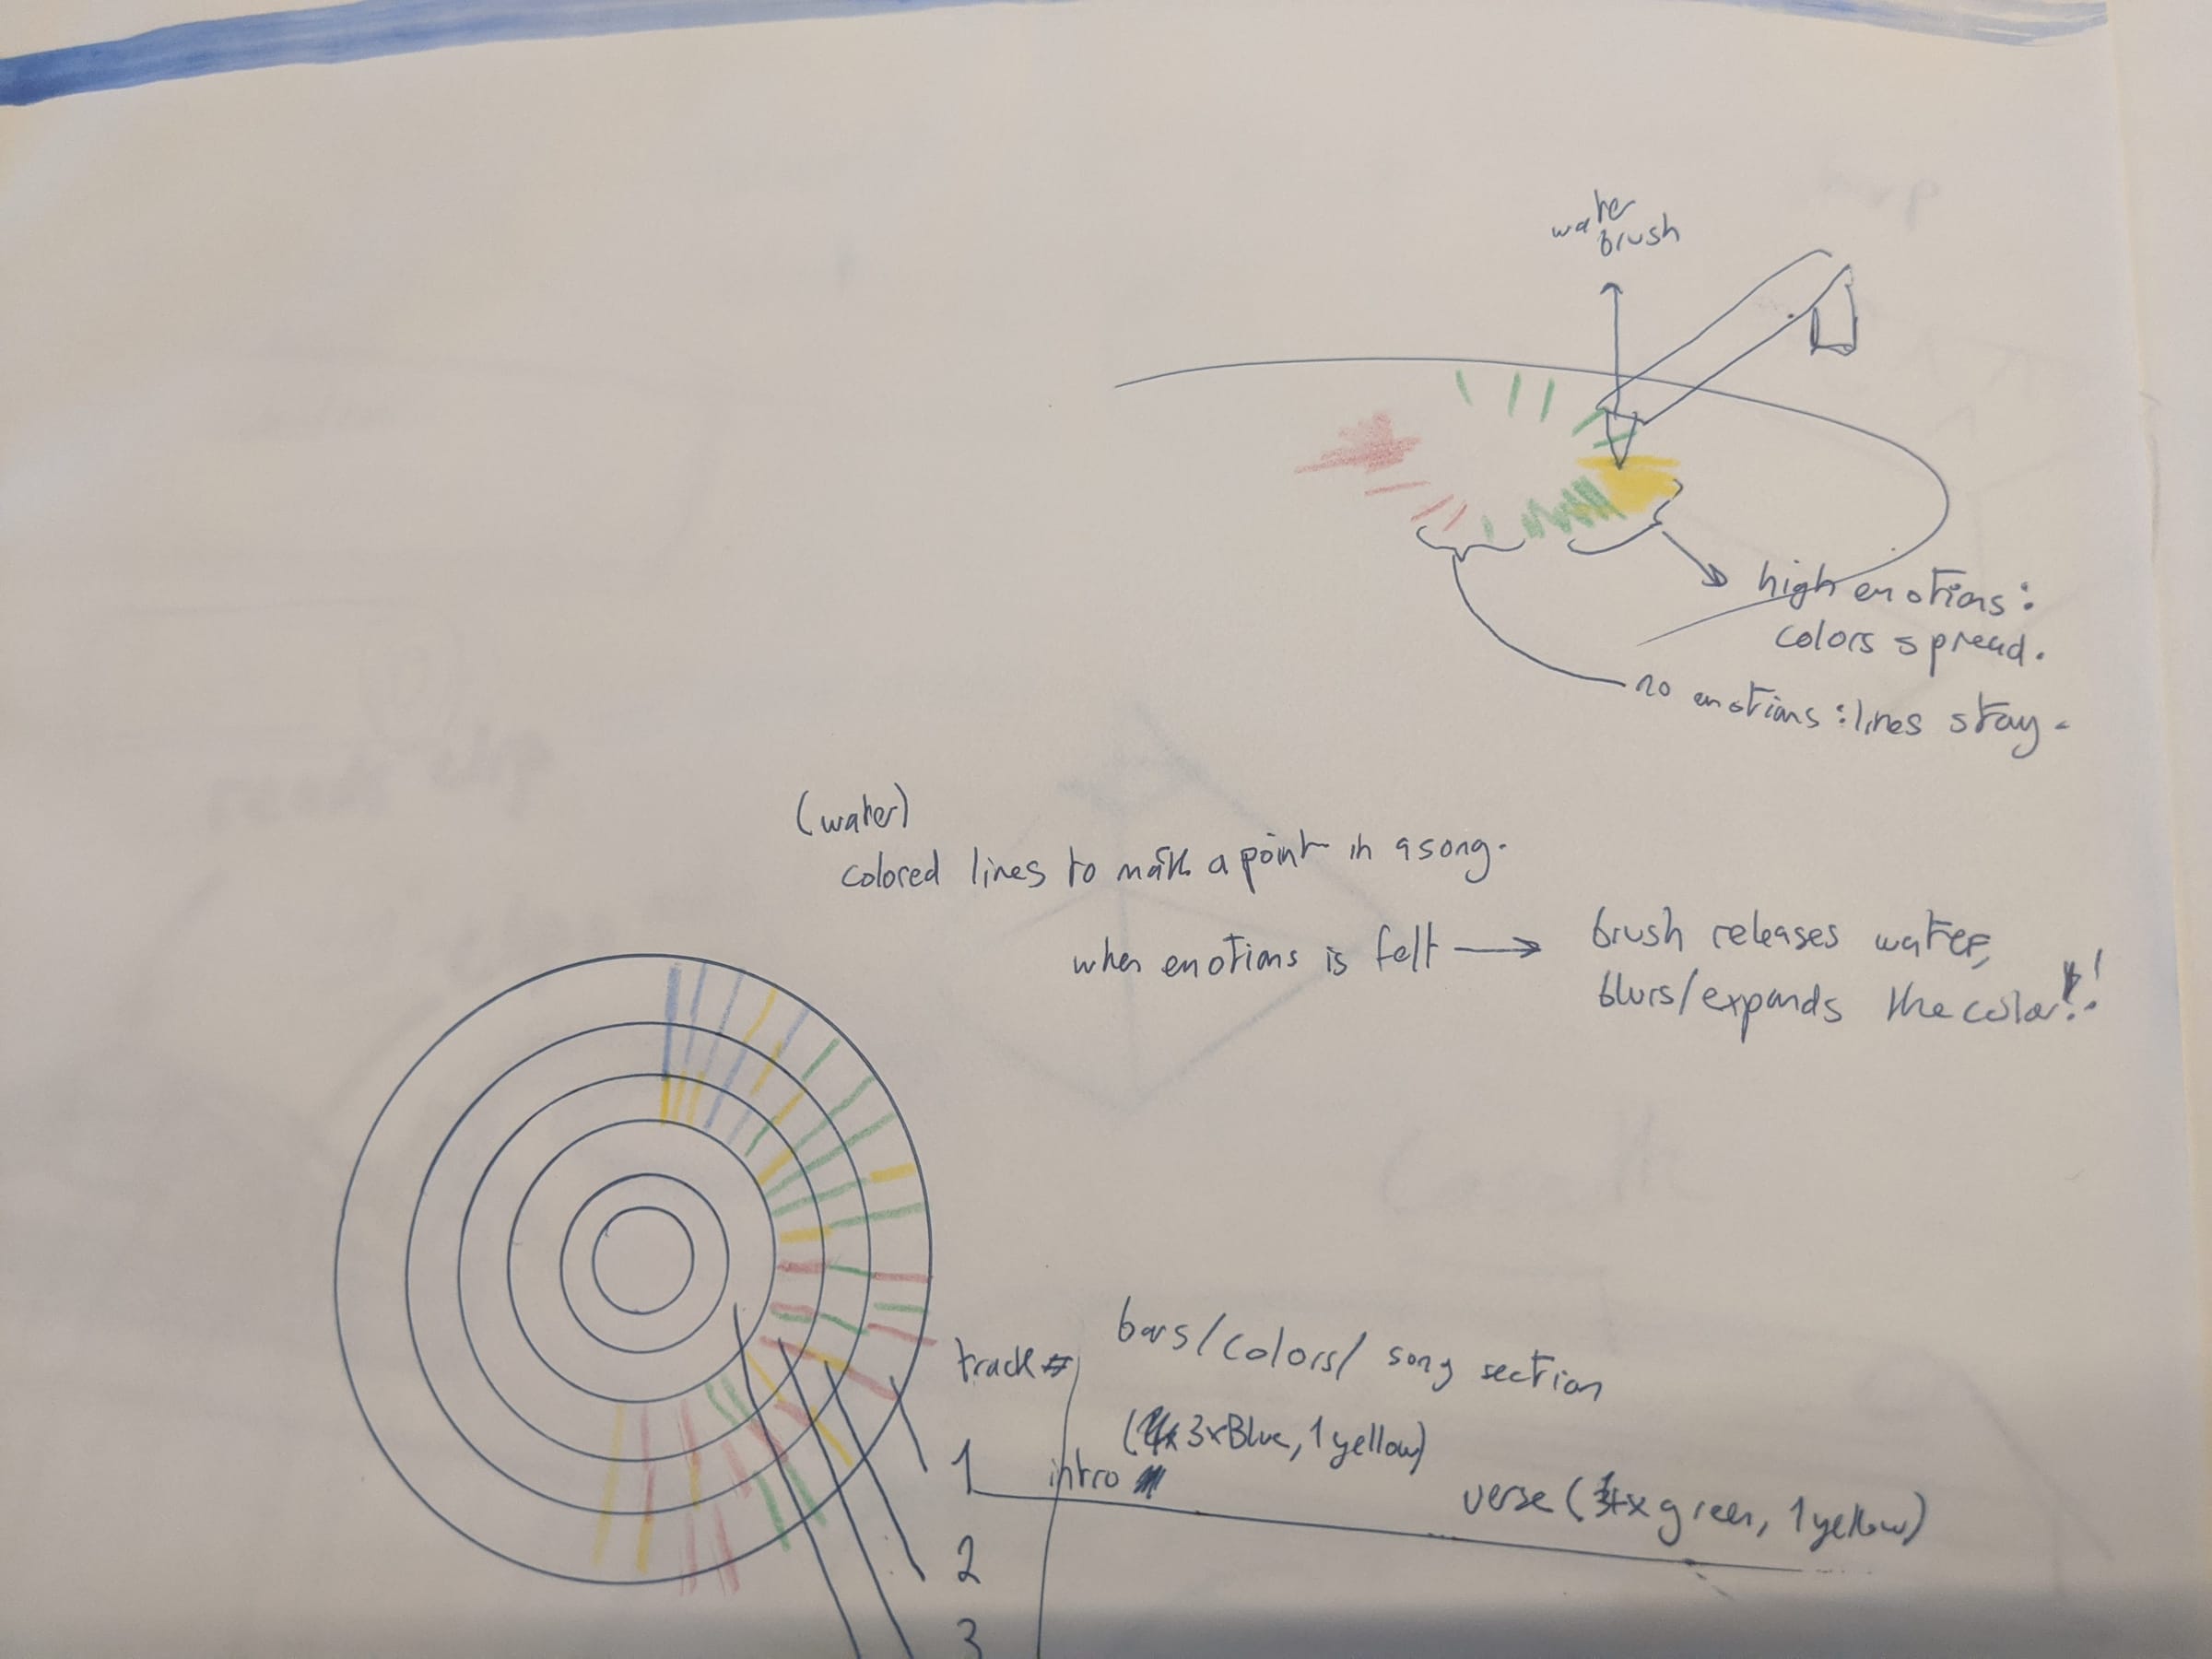 water
brush
high emotions:
colors spread.
no emotions: lines stay.
(water)
colored lines to mark a point in a song.
when emotions is felt → brush releases water,
blurs/expands the color!!
track #
bars/colors/ song section
1 intro (3xBlue, 1 yellow)
verse (4x green, 1 yellow)
2
3